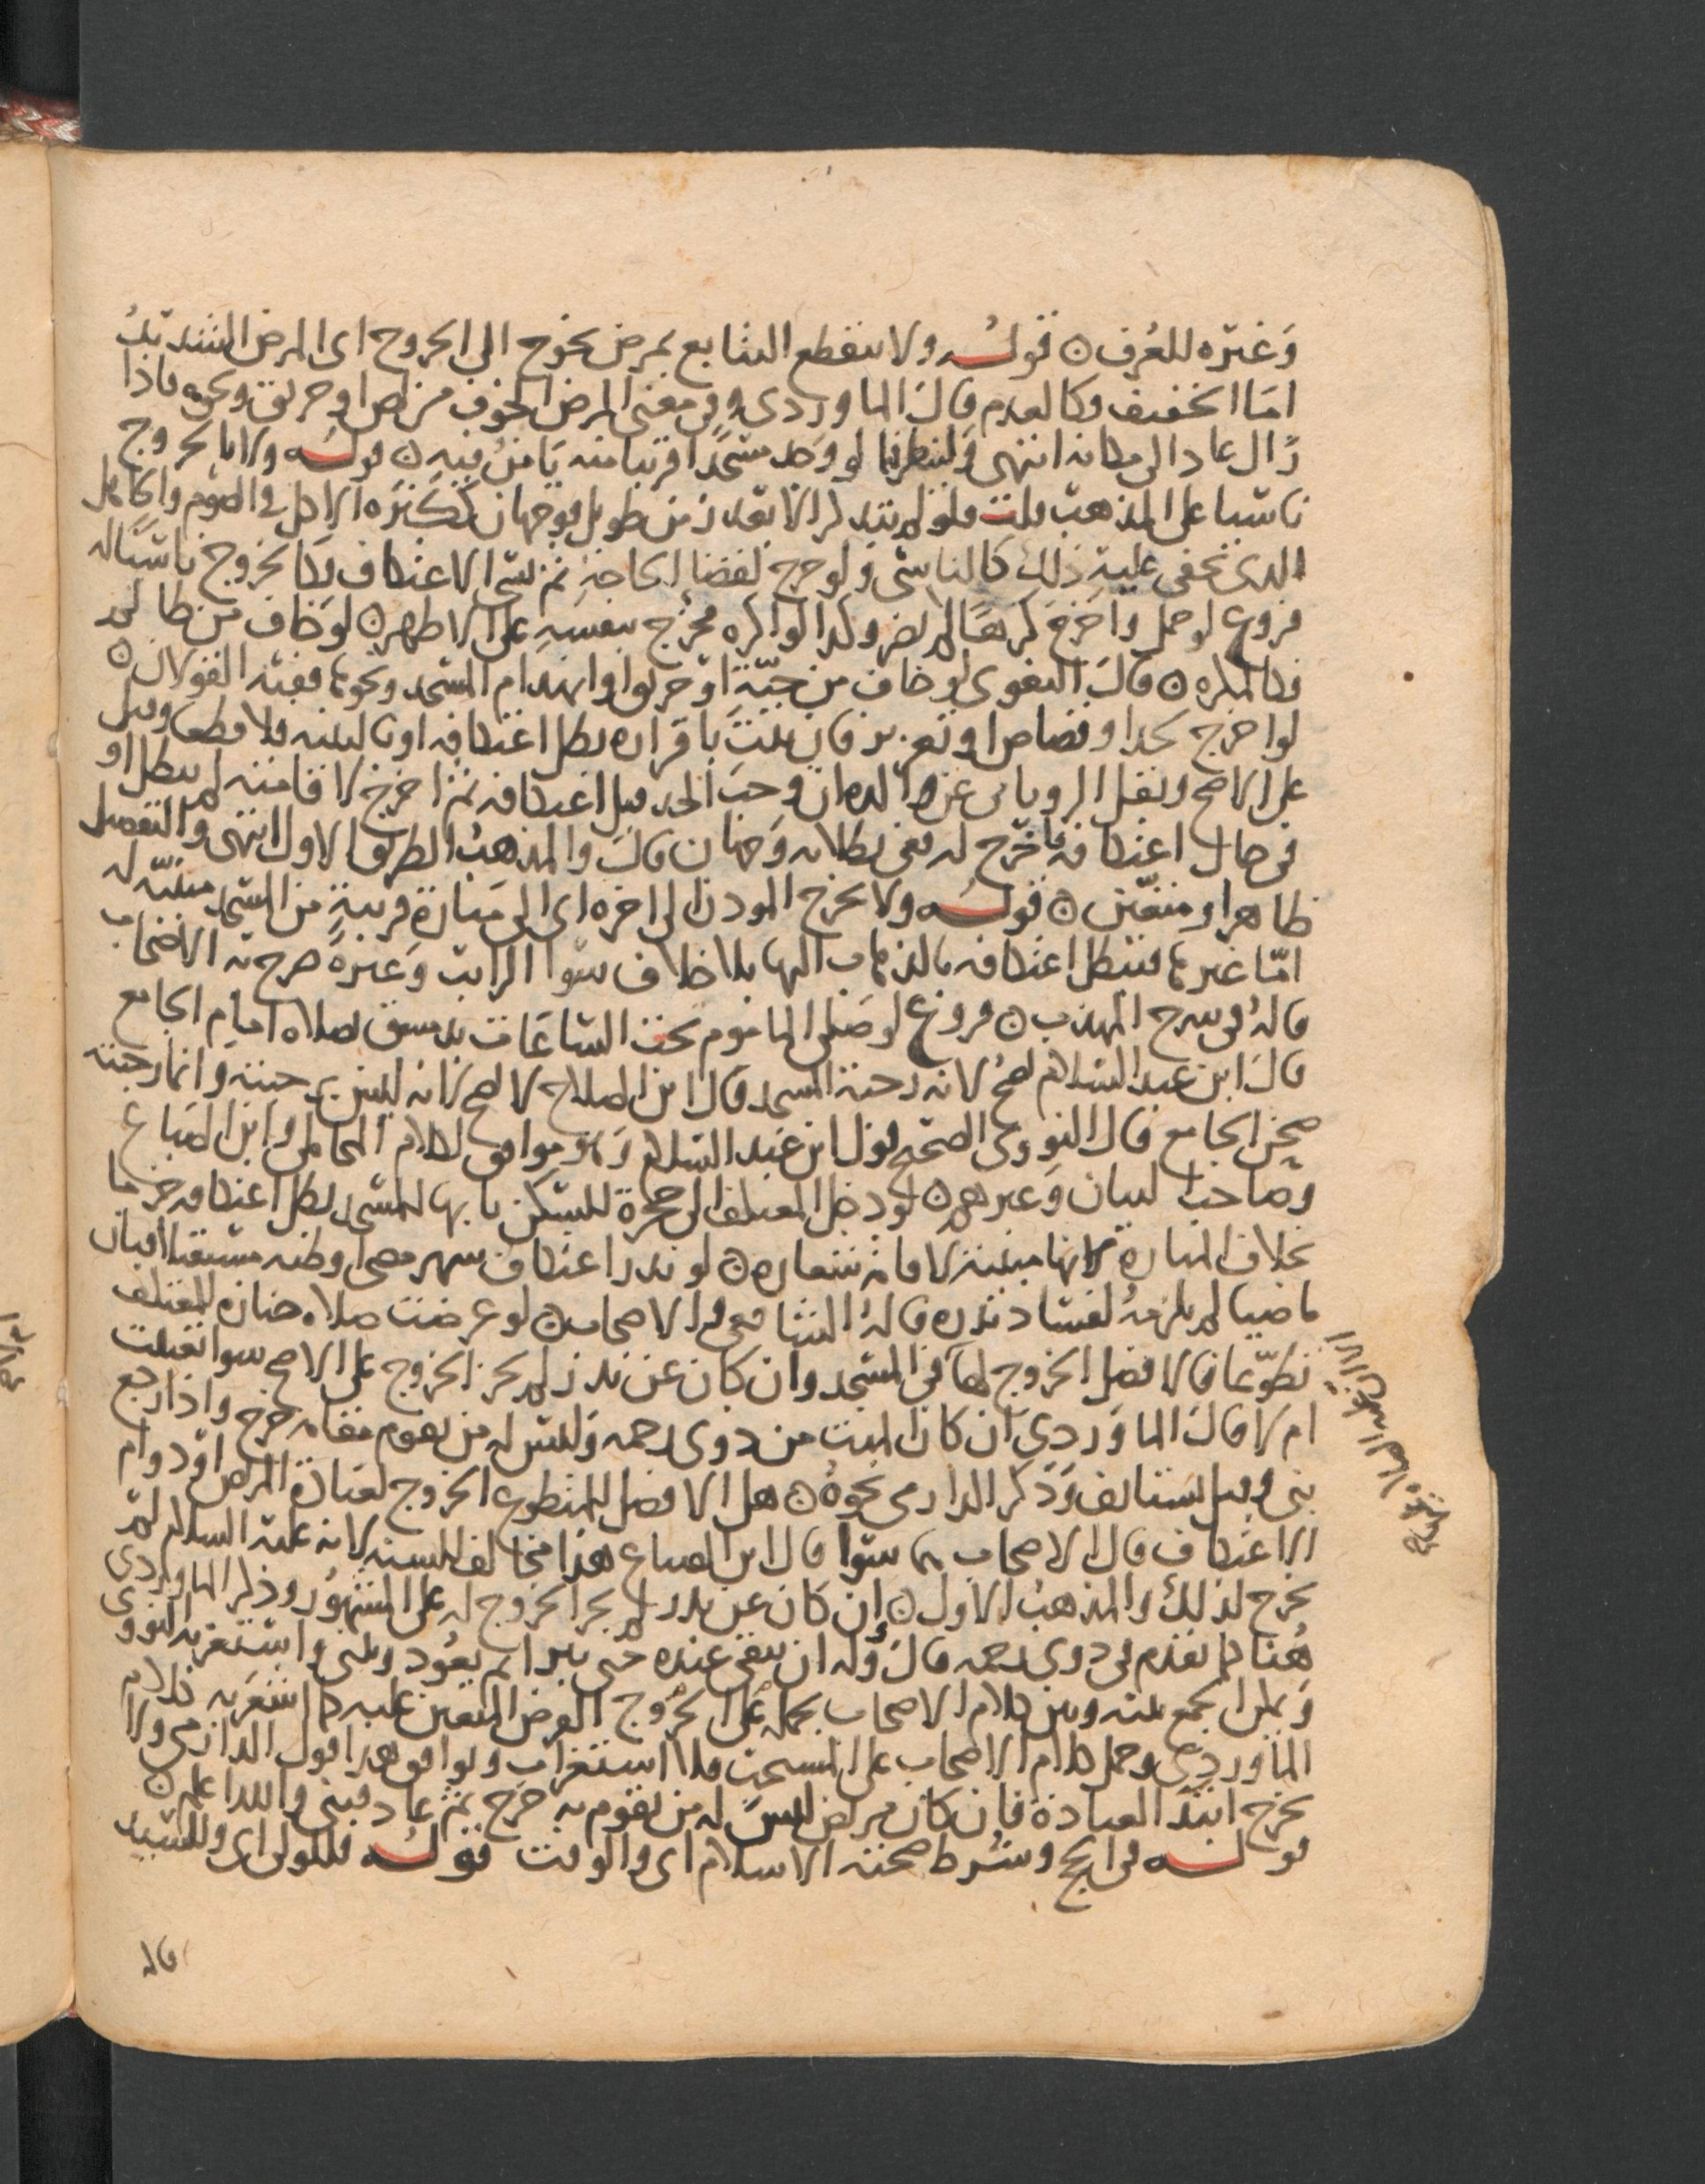 وغيره للعرف ن قوله ولا ينقطع التتابع بمرض يحوج الى الخروج اى المرض الشديد
اما الخفيف فكالعدم قال الماوردى وفى معنى المرض الخوف من لص او حريق ونحوه فاذا
زال عاد الى مكانه انتهى ولينظر فيما لو وجد مسجدا قريبا منه يامن فيه ن قوله ولا بالخروج
ناسيا على المذهب قلت فلو لم يتذكر الا بعد زمن طويل فوجهان ككثرة الاكل فى الصوم والجاهل
الذى يخفى عليه ذلك كالناسى ولو خرج لقضا الحاجة ثم نسى الاعتكاف فكالخروج ناسيا له
فروع لو حمل واخرج كرها لم يضر وكذا لو اكره فخرج بنفسه على الاظهر ن لو خاف من ظالم
فكالمكره ن قال البغوى لو خاف من حية او حريق او انهدام المسجد ونحوها ففيه القولان ن
لو اخرج لحد او قصاص او تعزير فان ثبت باقراره بطل اعتكافه او بالبينة فلا قطعا وقيل
على الاصح ونقل الرويانى عن والده ان وجب الحد قبل اعتكافه ثم اخرج لاقامته لم يبطل او
فى حال اعتكافه فاخرج له ففى بطلانه وجهان قال والمذهب الطريق الاول انتهى والتفصيل
ظاهر او متعين ن قوله ولا يخرج الموذن الى اخره اى الى منارة قريبة من المسجد مبنية له
اما غيرها فيبطل اعتكافه بالذهاب اليها بلا خلاف سوا الراتب وغيره صرح به الاصحاب
قاله فى شرح المهذب ن فروع لو صلى الماموم تحت الساعات بدمشق بصلاة امام الجامع
قال ابن عبد السلام يصح لانه رحبة المسجد وقال ابن الصلاح لا يصح لانه ليس برحبته وانما رحبته
صحن الجامع قال النووى الصحيح قول ابن عبد السلام وهو موافق لكلام المحاملى وابن الصباغ
وصاحب البيان وغيرهم ن لو دخل المعتكف الى حجرة للسكن بابها للمسجد بطل اعتكافه جزما
بخلاف المنارة لانها مبنية لاقامة شعاره ن لو نذر اعتكاف شهر مضى وظنه مستقبلا فبان
ماضيا لم يلزمه لفساد نذره قاله الشافعى والاصحاب ن لو عرضت صلاة جنازة للمعتكف
تطوعا فالافضل الخروج لها فى المسجد وان كان عن نذر لم يجز الخروج على الاصح سوا تعينت
ام لا قال الماوردى ان كان الميت من ذوى رحمه وليس له من يقوم مقامه خرج واذا رجع
بنى وقيل يستانف وذكر الدارمى نحوه ن هل الافضل للمتطوع الخروج لعيادة المرضى او دوام
الاعتكاف قال الاصحاب هما سوا قال ابن الصباغ هذا مخالف للسنة لانه عليه السلام لم
يخرج لذلك والمذهب الاول ن وان كان عن نذر لم يجز الخروج له على المشهور وذكر الماوردى
هنا كما تقدم فى ذوى رحمه قال وله ان يبقى عنده حتى يبرا ثم يعود ويبنى واستغربه النووى
ويمكن الجمع بينه وبين كلام الاصحاب بحمله على الخروج الفرض المتعين عليه كما اشعر به كلام
الماوردى وحمل كلام الاصحاب على المستحب فلا استغراب ويوافق هذا قول الدارمى ولا
يخرج ابتدا العيادة فان كان مريض ليس له من يقوم به خرج ثم عاد فبنى والله اعلم ن
قوله فى الحج وشرط صحته الاسلام اى والوقت قوله فللولى اى وللسيد
قال